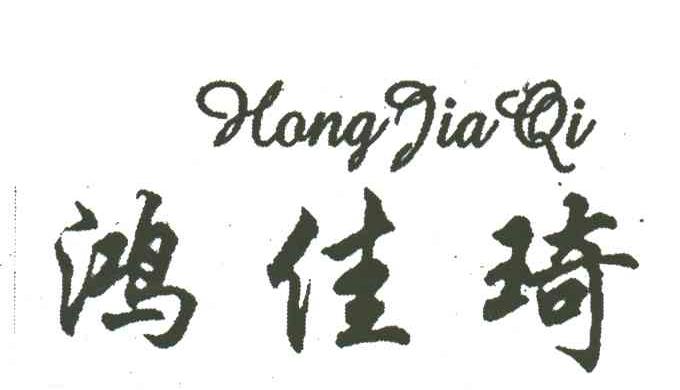 Hong Jia Qi
鸿佳琦